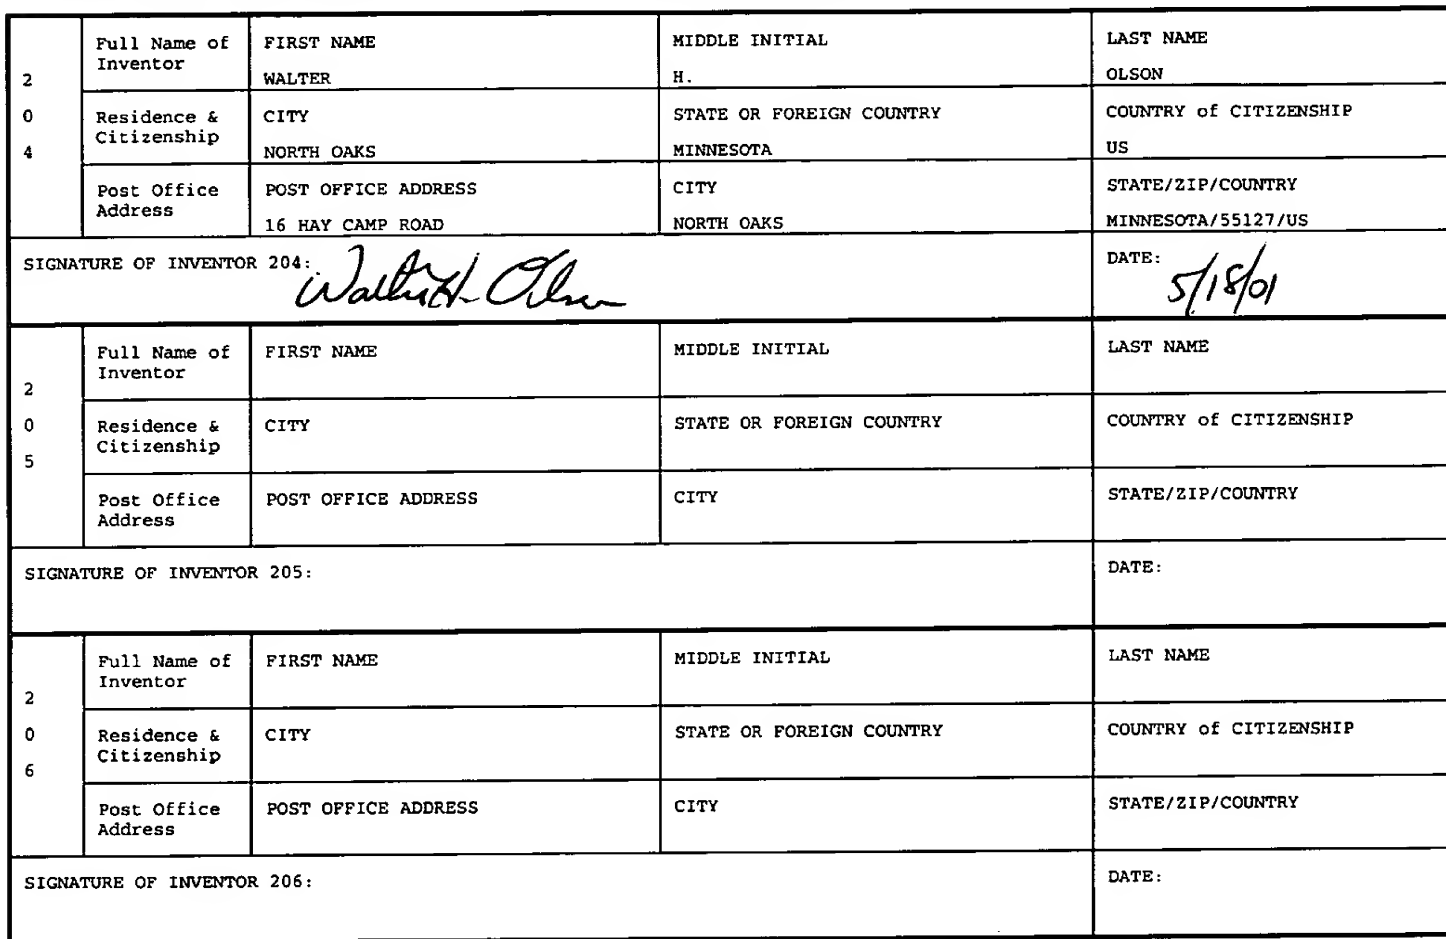 2 0 4
Full Name of Inventor
FIRST NAME
WALTER
MIDDLE INITIAL
H.
LAST NAME
OLSON
Residence & Citizenship
CITY
NORTH OAKS
STATE OR FOREIGN COUNTRY
MINNESOTA
COUNTRY of CITIZENSHIP
US
Post Office Address
POST OFFICE ADDRESS
16 HAY CAMP ROAD
CITY
NORTH OAKS
STATE/ZIP/COUNTRY
MINNESOTA/55127/US
SIGNATURE OF INVENTOR 204: Walter H. Olson
DATE: 5/18/01
2 0 5
Full Name of Inventor
FIRST NAME
MIDDLE INITIAL
LAST NAME
Residence & Citizenship
CITY
STATE OR FOREIGN COUNTRY
COUNTRY of CITIZENSHIP
Post Office Address
POST OFFICE ADDRESS
CITY
STATE/ZIP/COUNTRY
SIGNATURE OF INVENTOR 205:
DATE:
2 0 6
Full Name of Inventor
FIRST NAME
MIDDLE INITIAL
LAST NAME
Residence & Citizenship
CITY
STATE OR FOREIGN COUNTRY
COUNTRY of CITIZENSHIP
Post Office Address
POST OFFICE ADDRESS
CITY
STATE/ZIP/COUNTRY
SIGNATURE OF INVENTOR 206:
DATE: